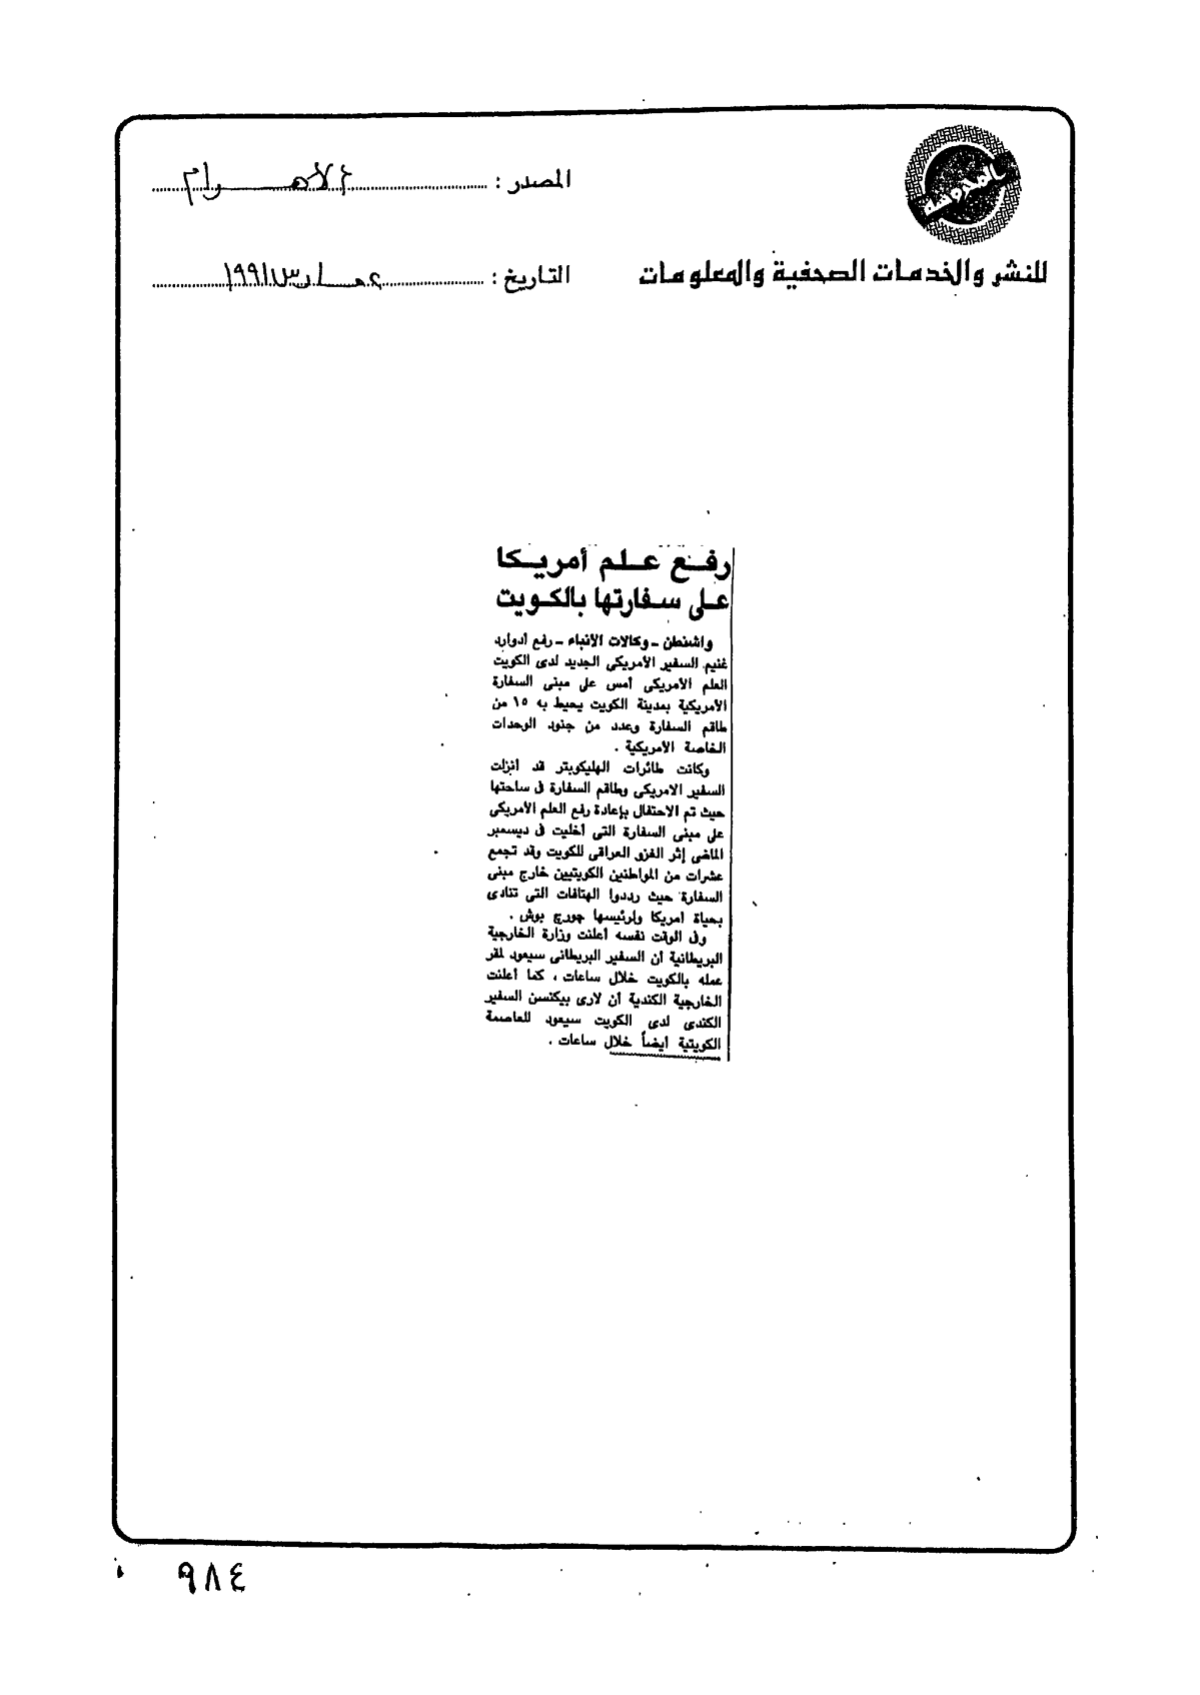 المصدر : الأهـــرام
للنشر والخدمات الصحفية والمعلومات
التاريخ : مـارس ١٩٩١
رفـع عـلـم أمريـكا
على سـفارتها بالكـويت
واشنطن ـ وكالات الأنباء ـ رفع أدوارد
غنيم السفير الأمريكى الجديد لدى الكويت
العلم الأمريكى أمس على مبنى السفارة
الأمريكية بمدينة الكويت يحيط به ١٥ من
طاقم السفارة وعدد من جنود الوحدات
الخاصة الأمريكية .
وكانت طائرات الهليكوبتر قد أنزلت
السفير الامريكى وطاقم السفارة فى ساحتها
حيث تم الاحتفال بإعادة رفع العلم الأمريكى
على مبنى السفارة التى أخليت فى ديسمبر
الماضى إثر الغزو العراقى للكويت وقد تجمع
عشرات من المواطنين الكويتيين خارج مبنى
السفارة حيث رددوا الهتافات التى تنادى
بحياة امريكا ولرئيسها جورج بوش .
وفى الوقت نفسه أعلنت وزارة الخارجية
البريطانية أن السفير البريطانى سيعود لمقر
عمله بالكويت خلال ساعات ، كما أعلنت
الخارجية الكندية أن لارى بيكنسن السفير
الكندى لدى الكويت سيعود للعاصمة
الكويتية أيضاً خلال ساعات .
٩٨٤